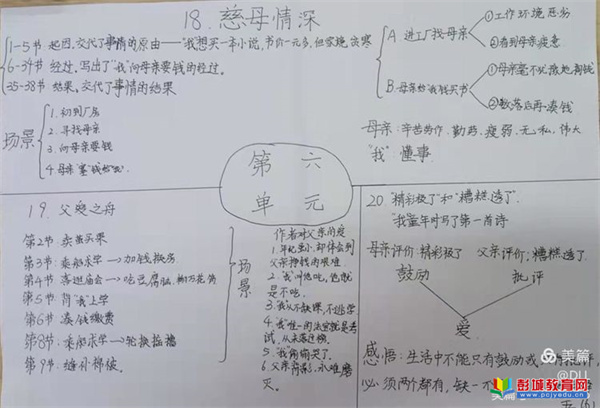 18. 慈母情深
1-5节 起因,交代了事情的原由——"我想买一本小说,书价一元多,但家境贫寒
6-34节 经过,写出了"我"向母亲要钱的经过。
35-38节 结果,交代了事情的结果
场景
1. 初到厂房
2. 寻找母亲
3. 向母亲要钱
4. 母亲"塞"钱给"我"
A 进工厂找母亲
①工作环境恶劣
②看到母亲疲惫
B.母亲给我钱买书
①母亲毫不犹豫地掏钱
②数落后再凑钱
母亲:辛苦劳作,勤劳,瘦弱,无私,伟大
"我" 懂事
第六
单元
19. 父爱之舟
第2节 卖茧买果
第3节 乘船求学→加钱换房
第4节 逛逛庙会→吃豆腐脑,糊万花筒
第5节 背"我"上学
第6节 凑钱缴费
第8节:乘船求学→轮换摇橹
第9节:缝补棉被。
场景
作者对父亲的爱
1.年纪虽小,却体会到
父亲挣钱的艰难
2. "我"叫他吃,他就
是不吃。
3.我从不缺课,不逃学
4. "我"唯一的法宝就是考
试,从未落过榜。
5. "我"偷偷哭了。
6.父亲背影,永难磨
灭。
20 "精彩极了"和"糟糕透了"
"我"童年时写了第一首诗
母亲评价:精彩极了 父亲评价:糟糕透了
鼓励 批评
爱
感悟:生活中不能只有鼓励或
必须两个都有,缺一不
美篇
@DU
彭城教育网
www.pcjyedu.cn